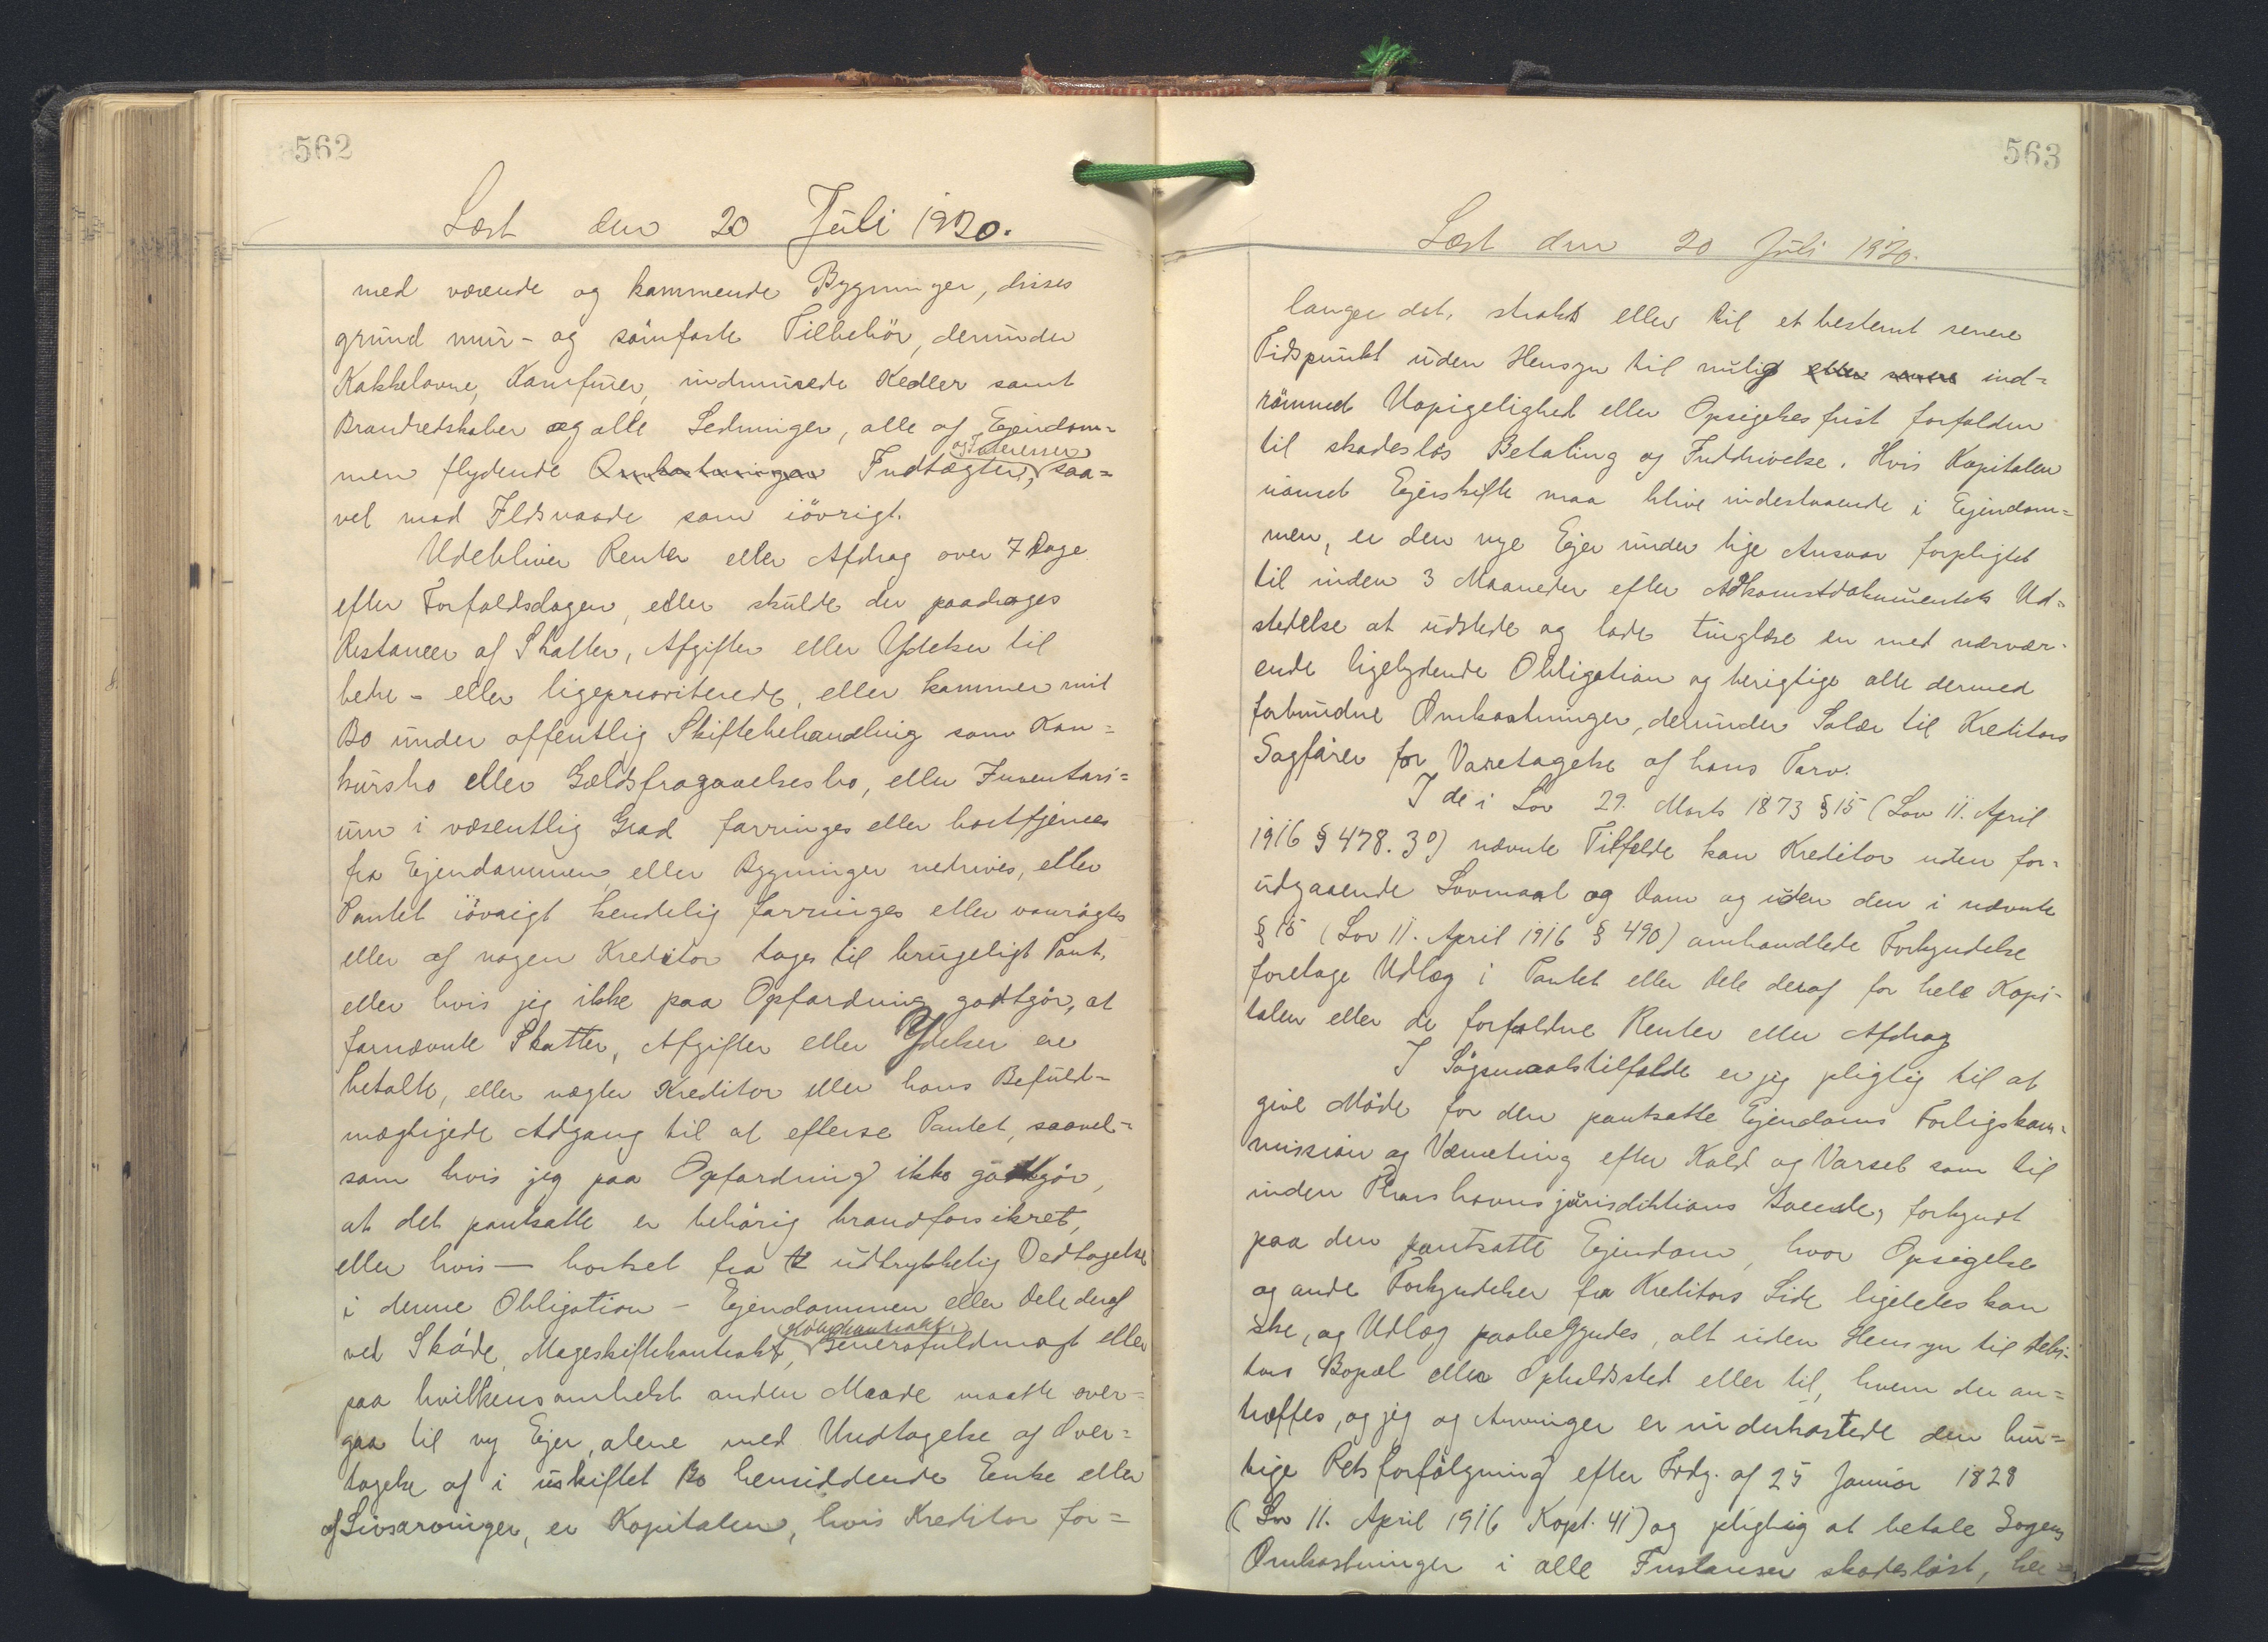 562
Læst den 20 Juli 1920.
med værende og kommende Bygninger, disses
grund mur- og sömfaste Tilbehör, derunder
Kakkelovne, Komfurer, indmurede Kedler samt
Brandredskaber og alle Ledninger, alle af Ejendom=
og Interesser
men flydende Omkostninger Indtægter, saa=
vel mod Ildsvaade som iövrigt.
Udebliver Renter eller Afdrag over 7 Dage
efter Forfaldsdagen, eller skulde der paadrages
Restancer af Skatter, Afgifter eller Ydelser til
bedre- eller ligeprioriterede, eller kommer mit
Bo under offentlig Skiftebehandling som Kon=
kursbo eller Gældsfragaaelsesbo, eller Inventari=
um i væsentlig Grad forringes eller bortfjernes
fra Ejendommen, eller Bygninger nedrives, eller
Pantet iövrigt kendelig forringes eller vanrögtes
eller af nogen Kreditor tages til brugeligt Pant,
eller hvis jeg ikke paa Opfordring godtgör, at
fornævnte Skatter, Afgifter eller Ydelser ere
betalte, eller nægter Kreditor eller hans Befuld=
mægtigede Adgang til at efterse Pantet, saavel=
som hvis jeg paa Opfordring ikke godtgör,
at det pantsatte er behörig brandforsikret,
eller hvis — bortset fra udtrykkelig Vedtagelse
i denne Obligation - Ejendommen eller Dele deraf
Köbekontrakt,
ved Sköde, Mageskiftekontrakt, Generafuldmagt eller
paa hvilkensomhelst anden Maade maatte over=
gaa til ny Ejer, alene med Undtagelse af Over=
tagelse af i uskiftet Bo hensiddende Enke eller
af Livsarvinger, er Kapitalen, hvis Kreditor for=
563
Læst den 20 Juli 1920.
langer det, strakts eller til et bestemt senere
Tidspunkt uden Hensyn til mulig eller senere ind=
römmet Uopsigelighed eller Opsigelsesfrist forfalden
til skadeslös Betaling og Inddrivelse. Hvis Kapitalen
uanset Ejerskifte maa blive indestaaende i Ejendom=
men, er den nye Ejer under lige Ansvar forpligtet
til inden 3 Maaneder efter Adkomstdokumentets Ud=
stedelse at udstede og lade tinglæse en med nærvær-
ende ligelydende Obligation og berigtige alle dermed
forbundne Omkostninger, derunder Salær til Kreditors
Sagförer for Varetagelse af hans Tarv.
I de i Lov 29. Marts 1873 § 15 (Lov 11. April
1916 § 478. 3º) nævnte Tilfælde kan Kreditor uden for-
udgaaende Lovmaal og Dom og uden den i nævnte
§ 15 (Lov 11. April 1916 § 490) omhandlede Forkyndelse
foretage Udlæg i Pantet eller Dele deraf for hele Kapi-
talen eller de forfaldne Renter eller Afdrag
I Sögsmaalstilfælde er jeg pligtig til at
give Möde for den pantsatte Ejendoms Forligskom-
mission og Værneting efter Kald og Varsel som til
inden jurisdiktions Boende, forkyndt
paa den pantsatte Ejendom, hvor Opsigelse
og andre Forkyndelser fra Kreditors Side ligeledes kan
ske, og Udlæg paabegyndes, alt uden Hensyn til Debi-
tors Bopæl eller Opholdssted eller til, hvem der an=
træffes, og jeg og Arvinger er underkastede den hur=
tige Retsforfölgning efter Frdg. af 25 Januar 1828
(Lov 11. April 1916 Kapt. 41) og pligtig at betale Sagens
Omkostninger i alle Instanser skadeslöst, her=